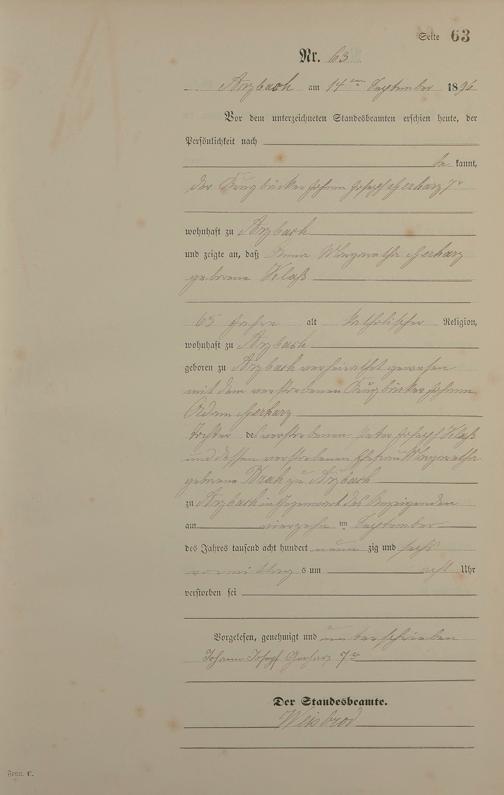 Seite 63
Nr. 63
Arzbach am 14ten September 1896
Vor dem unterzeichneten Standesbeamten erschien heute, der
Persönlichkeit nach
be kannt,
der Krugbäcker Johann Joseph Gerharz 7r
wohnhaft zu Arzbach
und zeigte an, daß Anna Margaretha Gerharz
geborene Klaß
65 Jahre alt katholischer Religion,
wohnhaft zu Arzbach
geboren zu Arzbach verheirathet gewesen
mit dem verstorbenen Krugbäcker Johann
Adam Gerharz
Tochter des verstorbenen Peter Joseph Klaß
und dessen verstorbenen Ehefrau Margaretha
geborene zu Arzbach
zu Arzbach in Gegenwart des Anzeigenden
am vierzehn ten September
des Jahres tausend acht hundert neun zig und sechs
vormittag s um acht Uhr
verstorben sei
Vorgelesen, genehmigt und unterschrieben
Johann Josepf Gerharz 7r
Der Standesbeamte.
Weisbrod
Form. C.